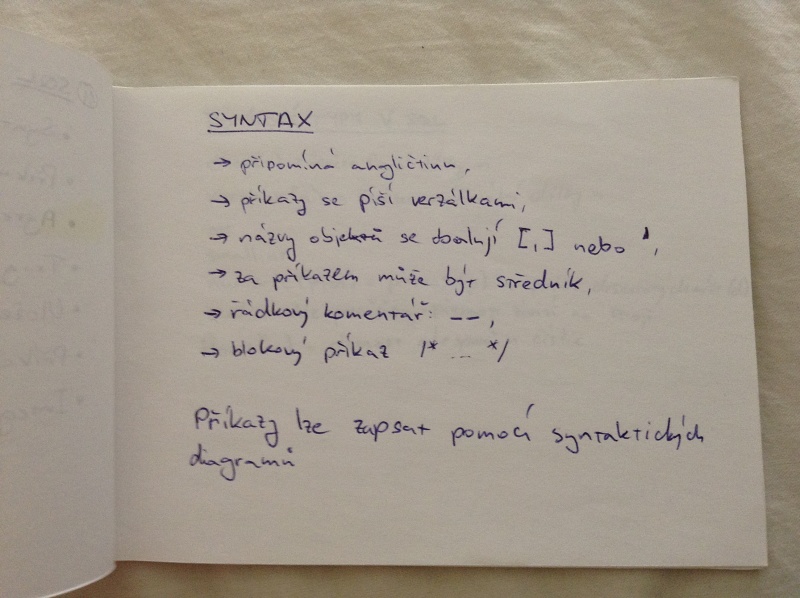 SYNTAX
→ připomíná angličtinu,
→ příkazy se píší verzálkami,
→ názvy objektů se obalují [,] nebo ',
→ za příkazem může být středník,
→ řádkový komentář: --,
→ blokový příkaz /* ... */
Příkazy lze zapsat pomocí syntaktických
diagramů